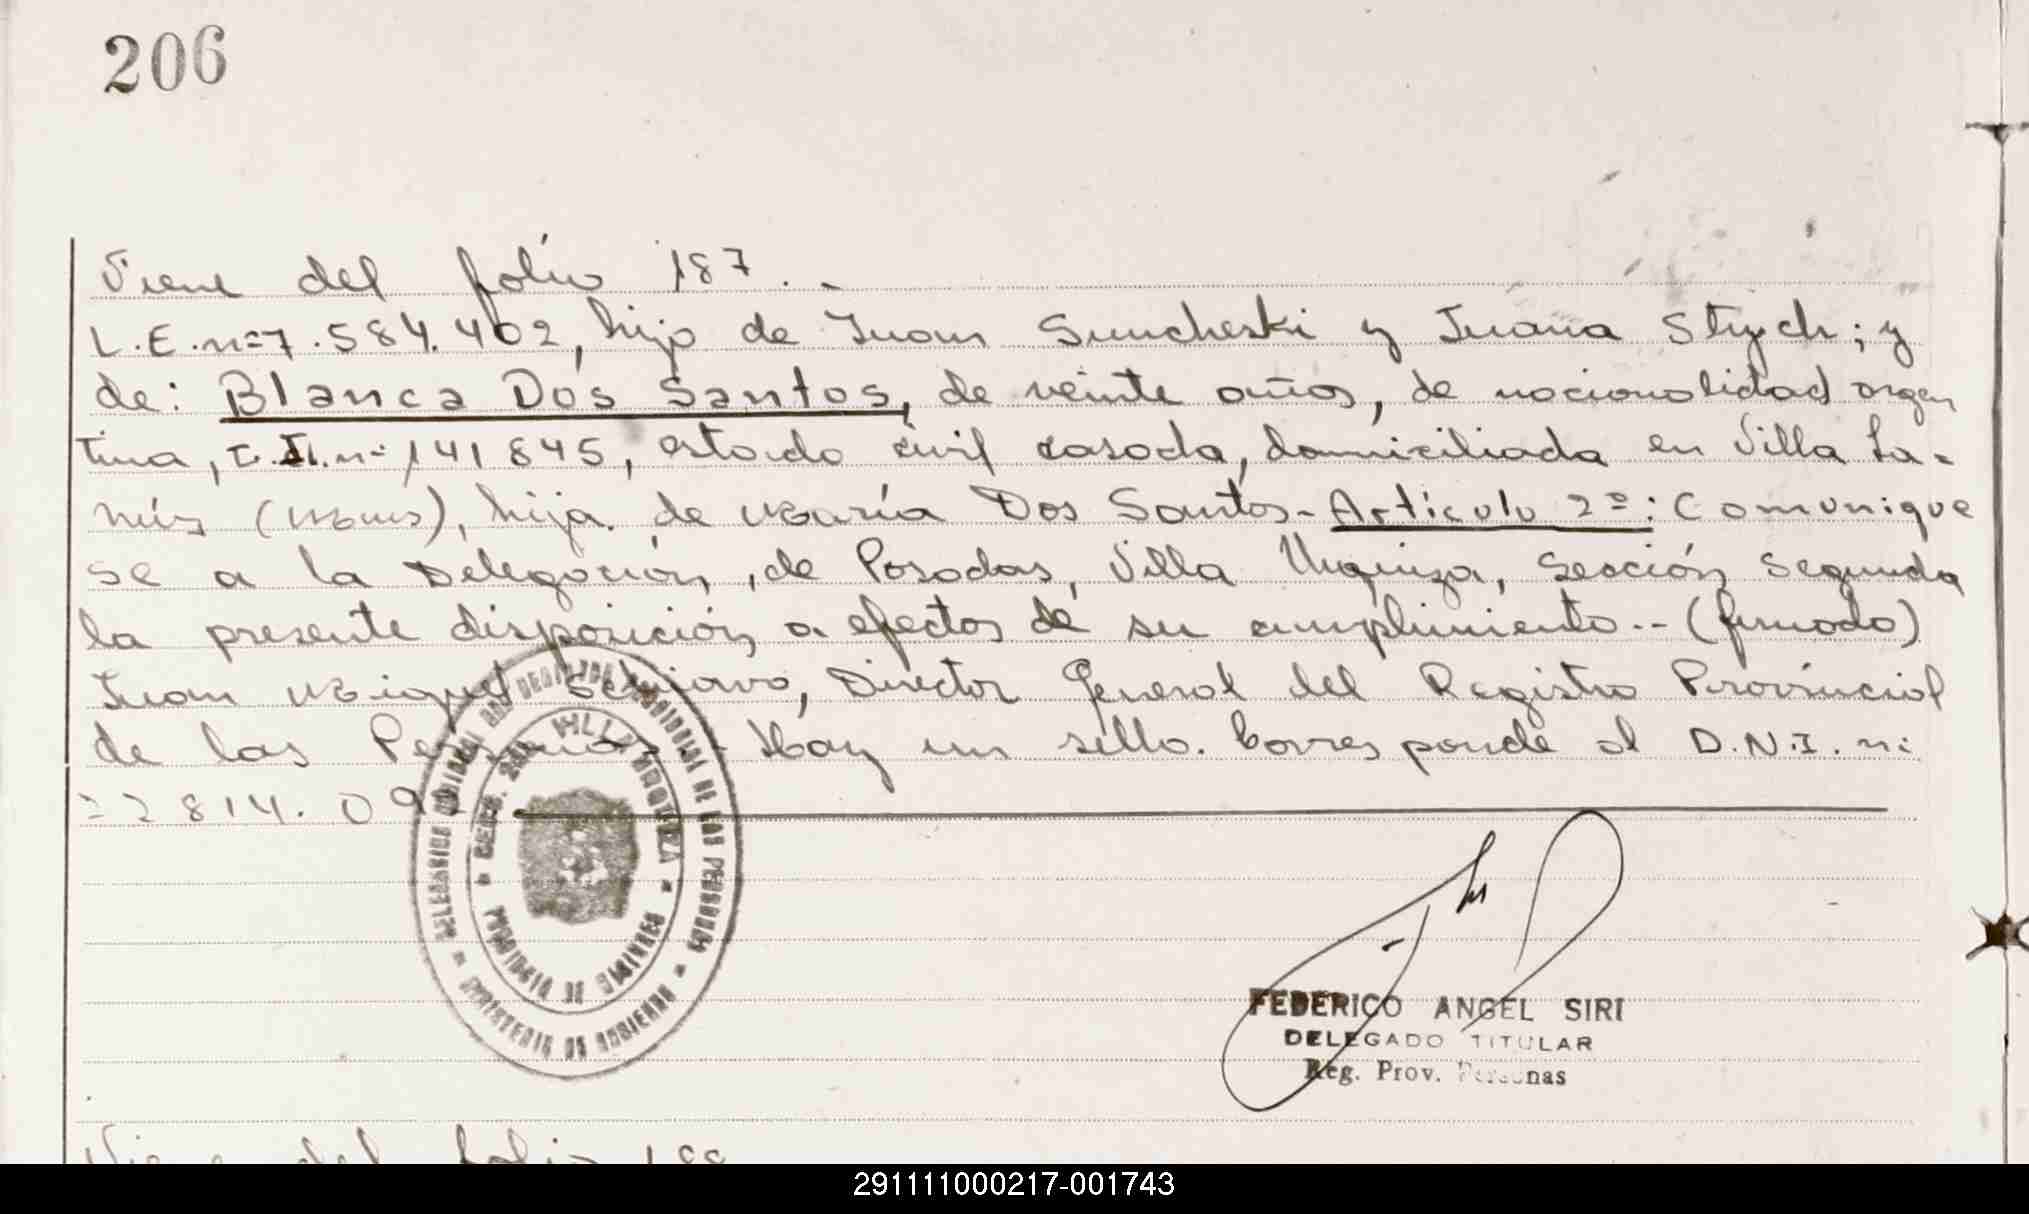 206
Viene del folio 187.-
L.E.nº7.584.402, hijo de Juan Suncheski y Juana Stych; y
de: Blanca Dos Santos, de veinte años, de nacionalidad argen
tina, C.I.nº 141845, estado civil casada, domiciliada en Villa La-
nús (Mnes), hija de María Dos Santos.- Artículo 2º: Comunique
se a la Delegación, de Posadas, Villa Urquiza, Sección Segunda
la presente disposición a efectos de su cumplimiento.-- (firmado)
Juan Miguel, Director General del Registro Provincial
de las Personas.- Hay un sello. Corresponde al D.N.I. nº
22814.09
DELEGACION DEL REGISTRO PROVINCIAL DE LAS PERSONAS
MINISTERIO DE GOBIERNO
SECC. 2da. VILLA URQUIZA
PROVINCIA DE MISIONES
FEDERICO ANGEL SIRI
DELEGADO TITULAR
Reg. Prov. Personas
Viene del folio 188
291111000217-001743